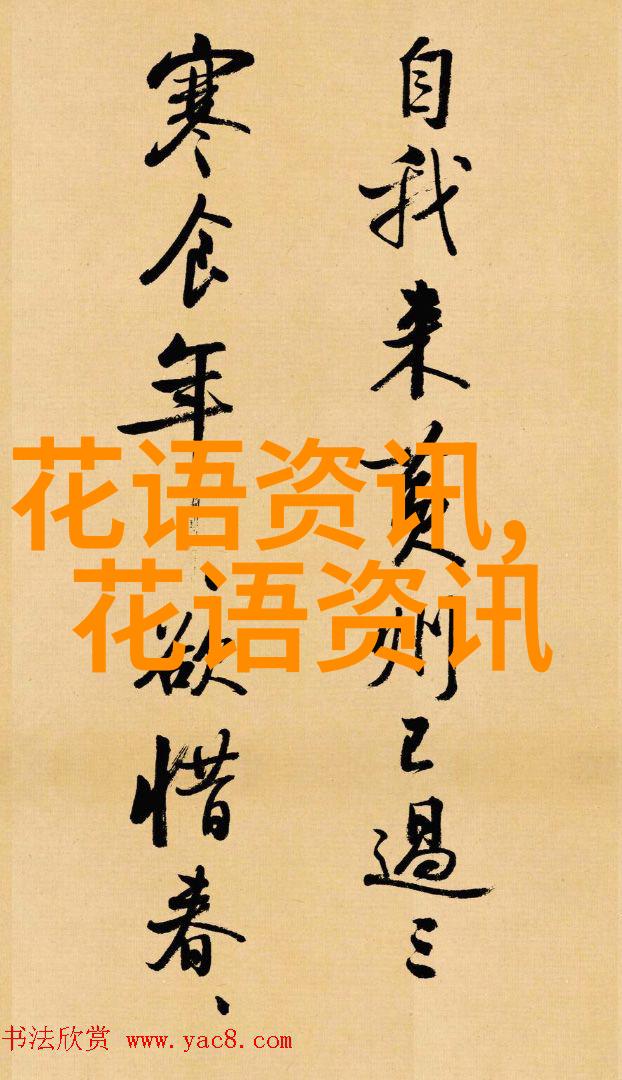 自我来黄州已過三
寒食年、欲惜春、
花语资讯,
花语资讯
书法欣赏 www.yac8.com